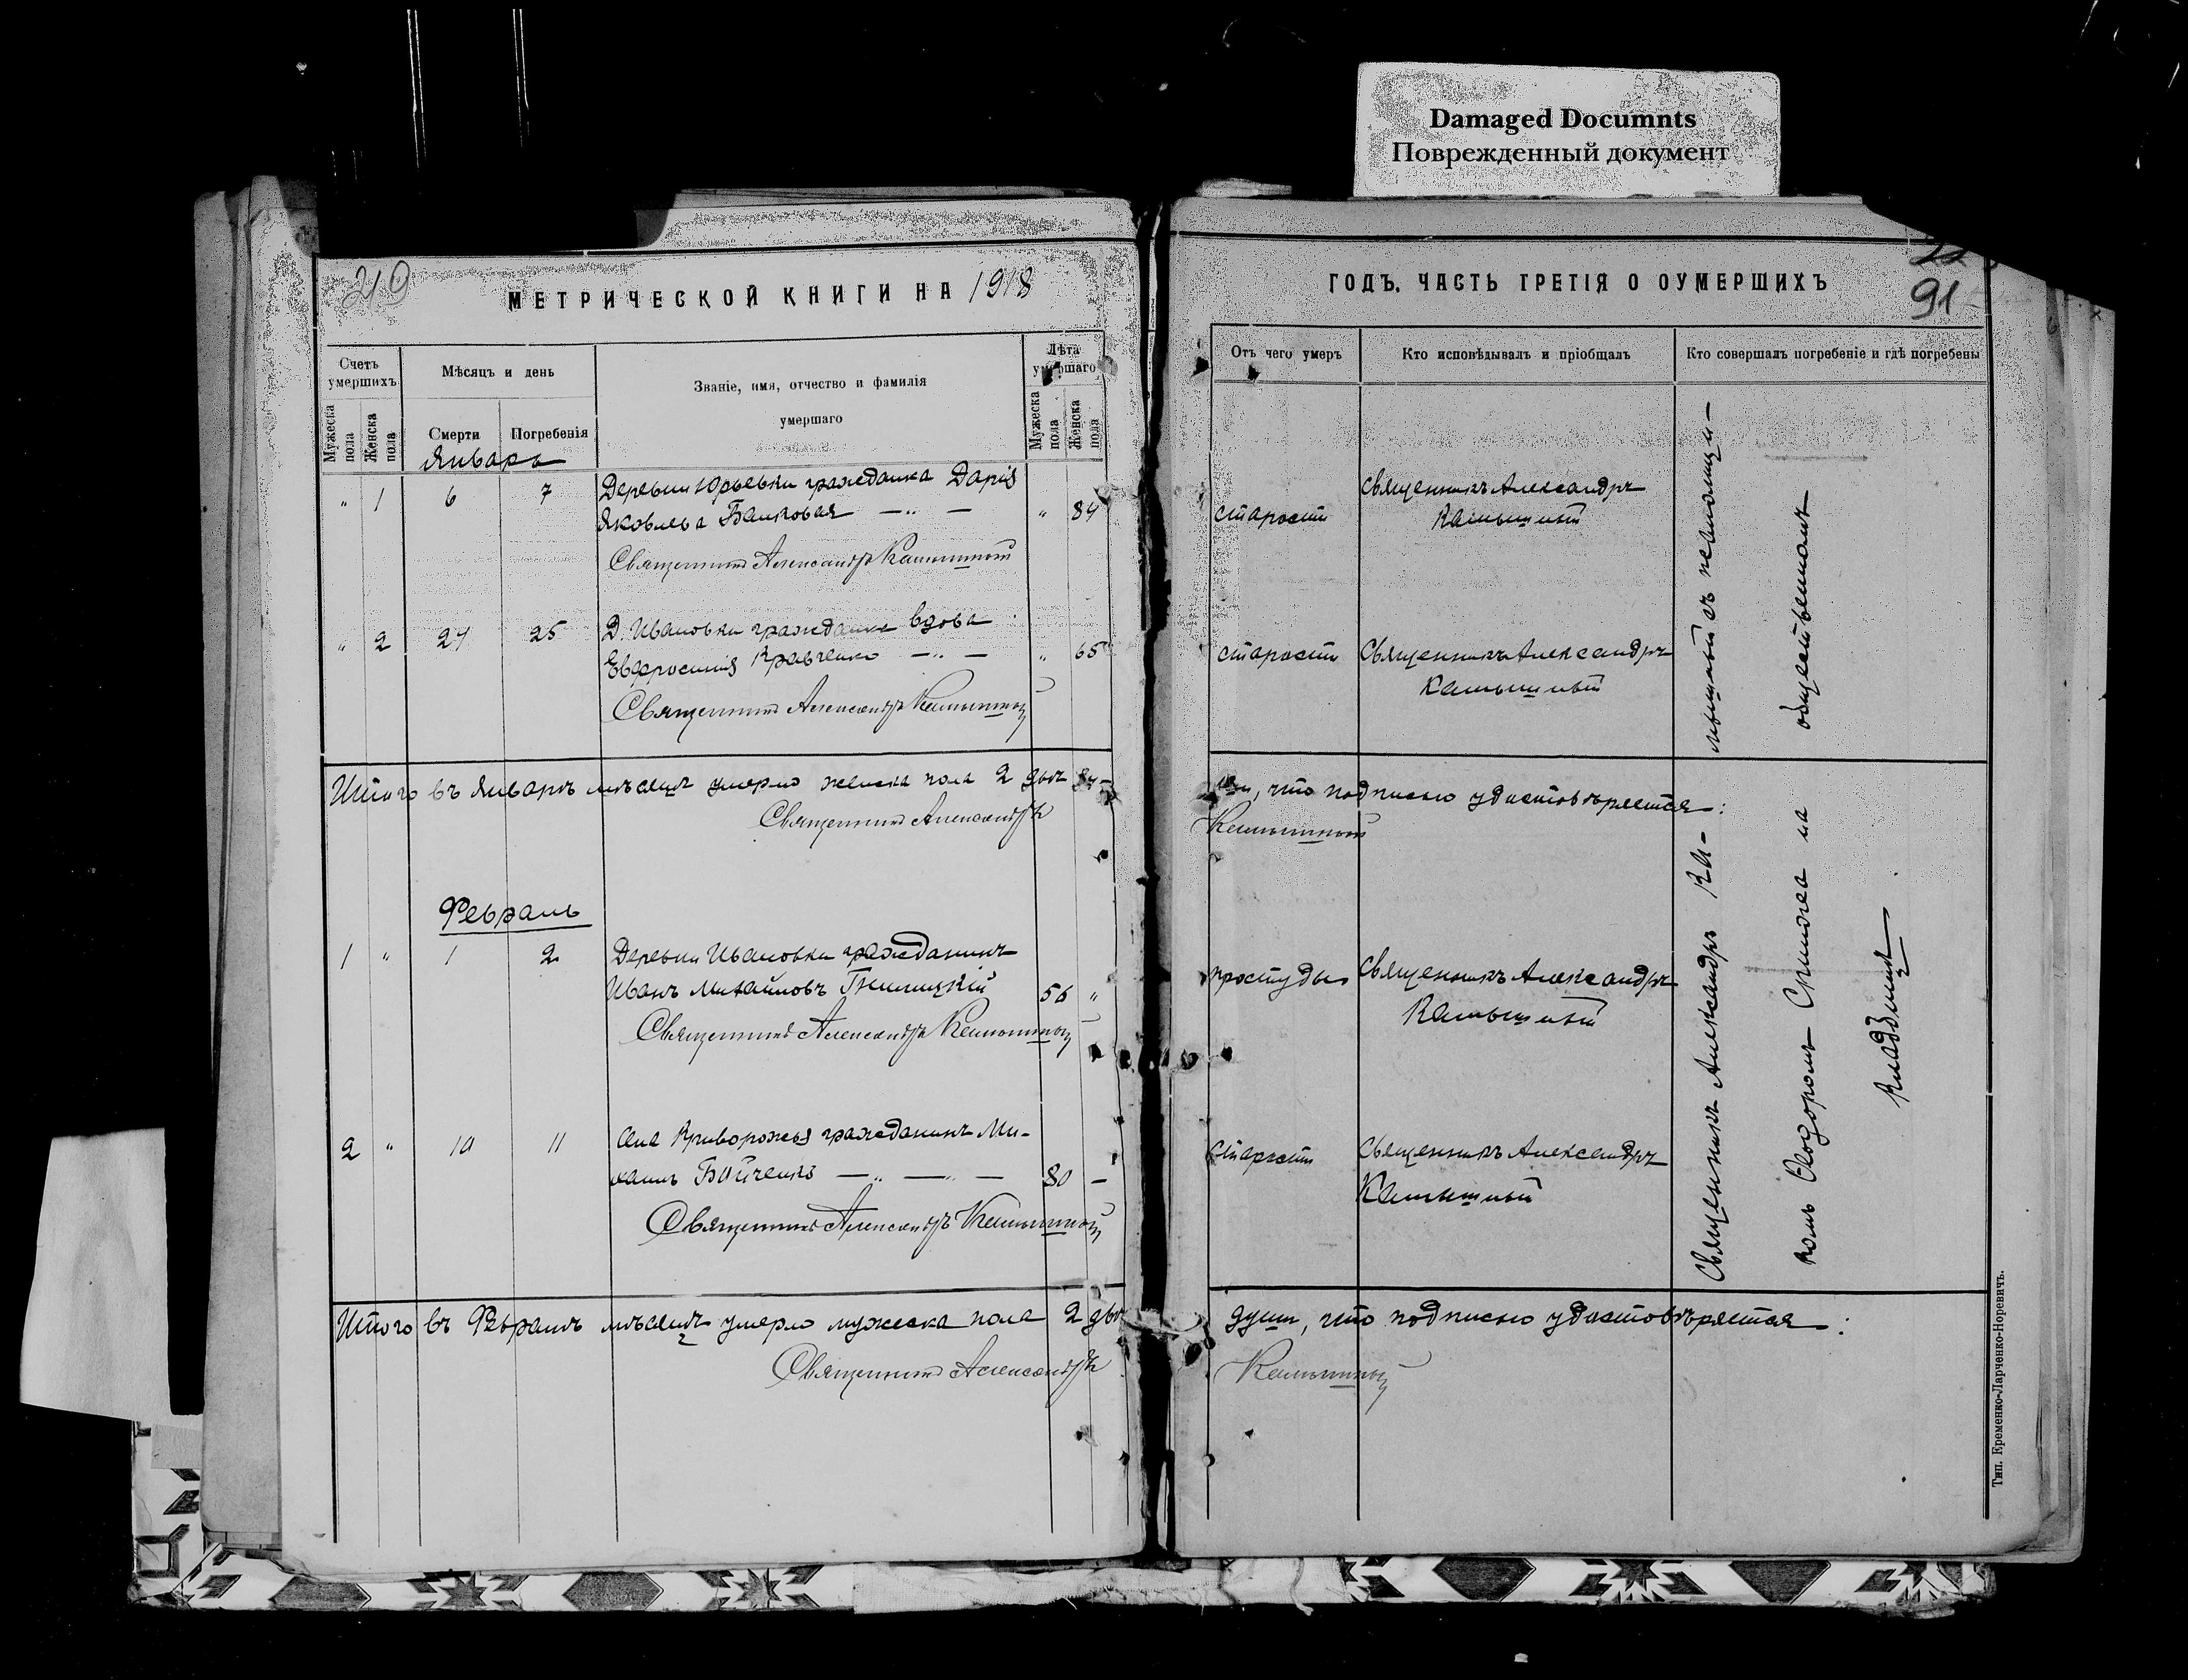 Damaged Documnts
Поврежденный документ
219
МЕТРИЧЕСКОЙ КНИГИ НА 1918
Счетъ умершихъ
Мужеска пола
Женска пола
Мѣсяцъ и день
Смерти
Погребенія
Званіе, имя, отчество и фамилія
умершаго
Лѣта умершаго
Мужеска пола
Женска пола
Январь
" 1 6 7 Деревни Юрьевки гражданка Дарія
Яковлева Байковая — " — " 84
Священникъ Александръ Камышный
" 2 24 25 Д. Ивановки гражданка вдова
Евфросинія Кравченко — " — " 65
Священникъ Александръ Камышный
Итого въ Январѣ мѣсяцѣ умерло женска пола 2 двѣ
Священникъ Александръ
Февраль
1 " 1 2 Деревни Ивановки гражданинъ
Иванъ Михайловъ Гнилицкій 56 "
Священникъ Александръ Камышный
2 " 10 11 Села Криворожья гражданинъ Ми-
хаилъ Бойченко — " — " — 80 —
Священникъ Александръ Камышный
Итого въ Февралѣ мѣсяцѣ умерло мужеска пола 2 двѣ
Священникъ Александръ
ГОДЪ. ЧАСТЬ ТРЕТІЯ О ОУМЕРШИХЪ
91
Отъ чего умеръ
Кто исповѣдывалъ и пріобщалъ
Кто совершалъ погребеніе и гдѣ погребены
старости
Священникъ Александръ
Камышный
старости
Священникъ Александръ
Камышный
что подписью удостовѣряется:
Камышный
простуды
Священникъ Александръ
Камышный
старости
Священникъ Александръ
Камышный
Священникъ Александръ Ка-
мышный съ псаломщи-
комъ Ѳеодоромъ на
общественномъ
кладбищѣ
души, что подписью удостовѣряется:
Камышный
Тип. Кременко-Ларченко-Норевичъ.